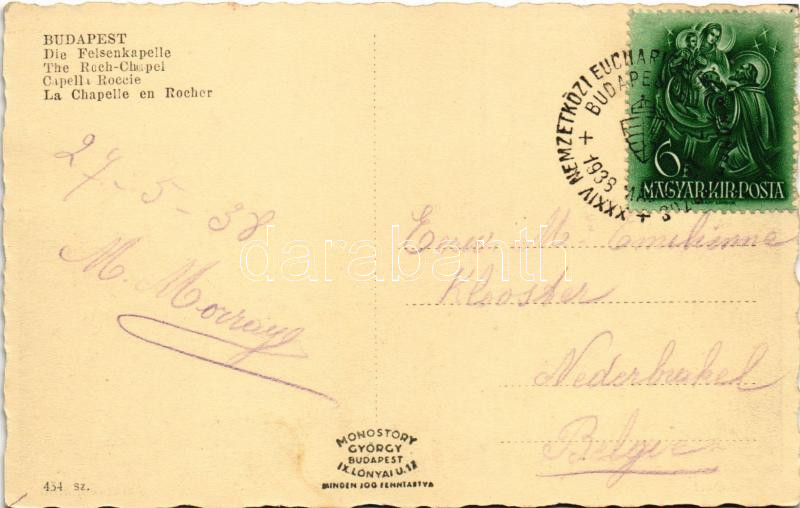 BUDAPEST
Die Felsenkapelle
The Roch-Chapel
Capella Roccie
La Chapelle en Rocher
27-5-38
M.
XXXIV NEMZETKÖZI EUCHAR
BUDAPE
1938
6 f
MAGYAR·KIR·POSTA
Eerw. M. Emilienne
Klooster
Nederbrakel
Belgie
darabanth
MONOSTORY
GYÖRGY
BUDAPEST
IX. LÓNYAI U. 17
MINDEN JOG FENNTARTVA
454 sz.